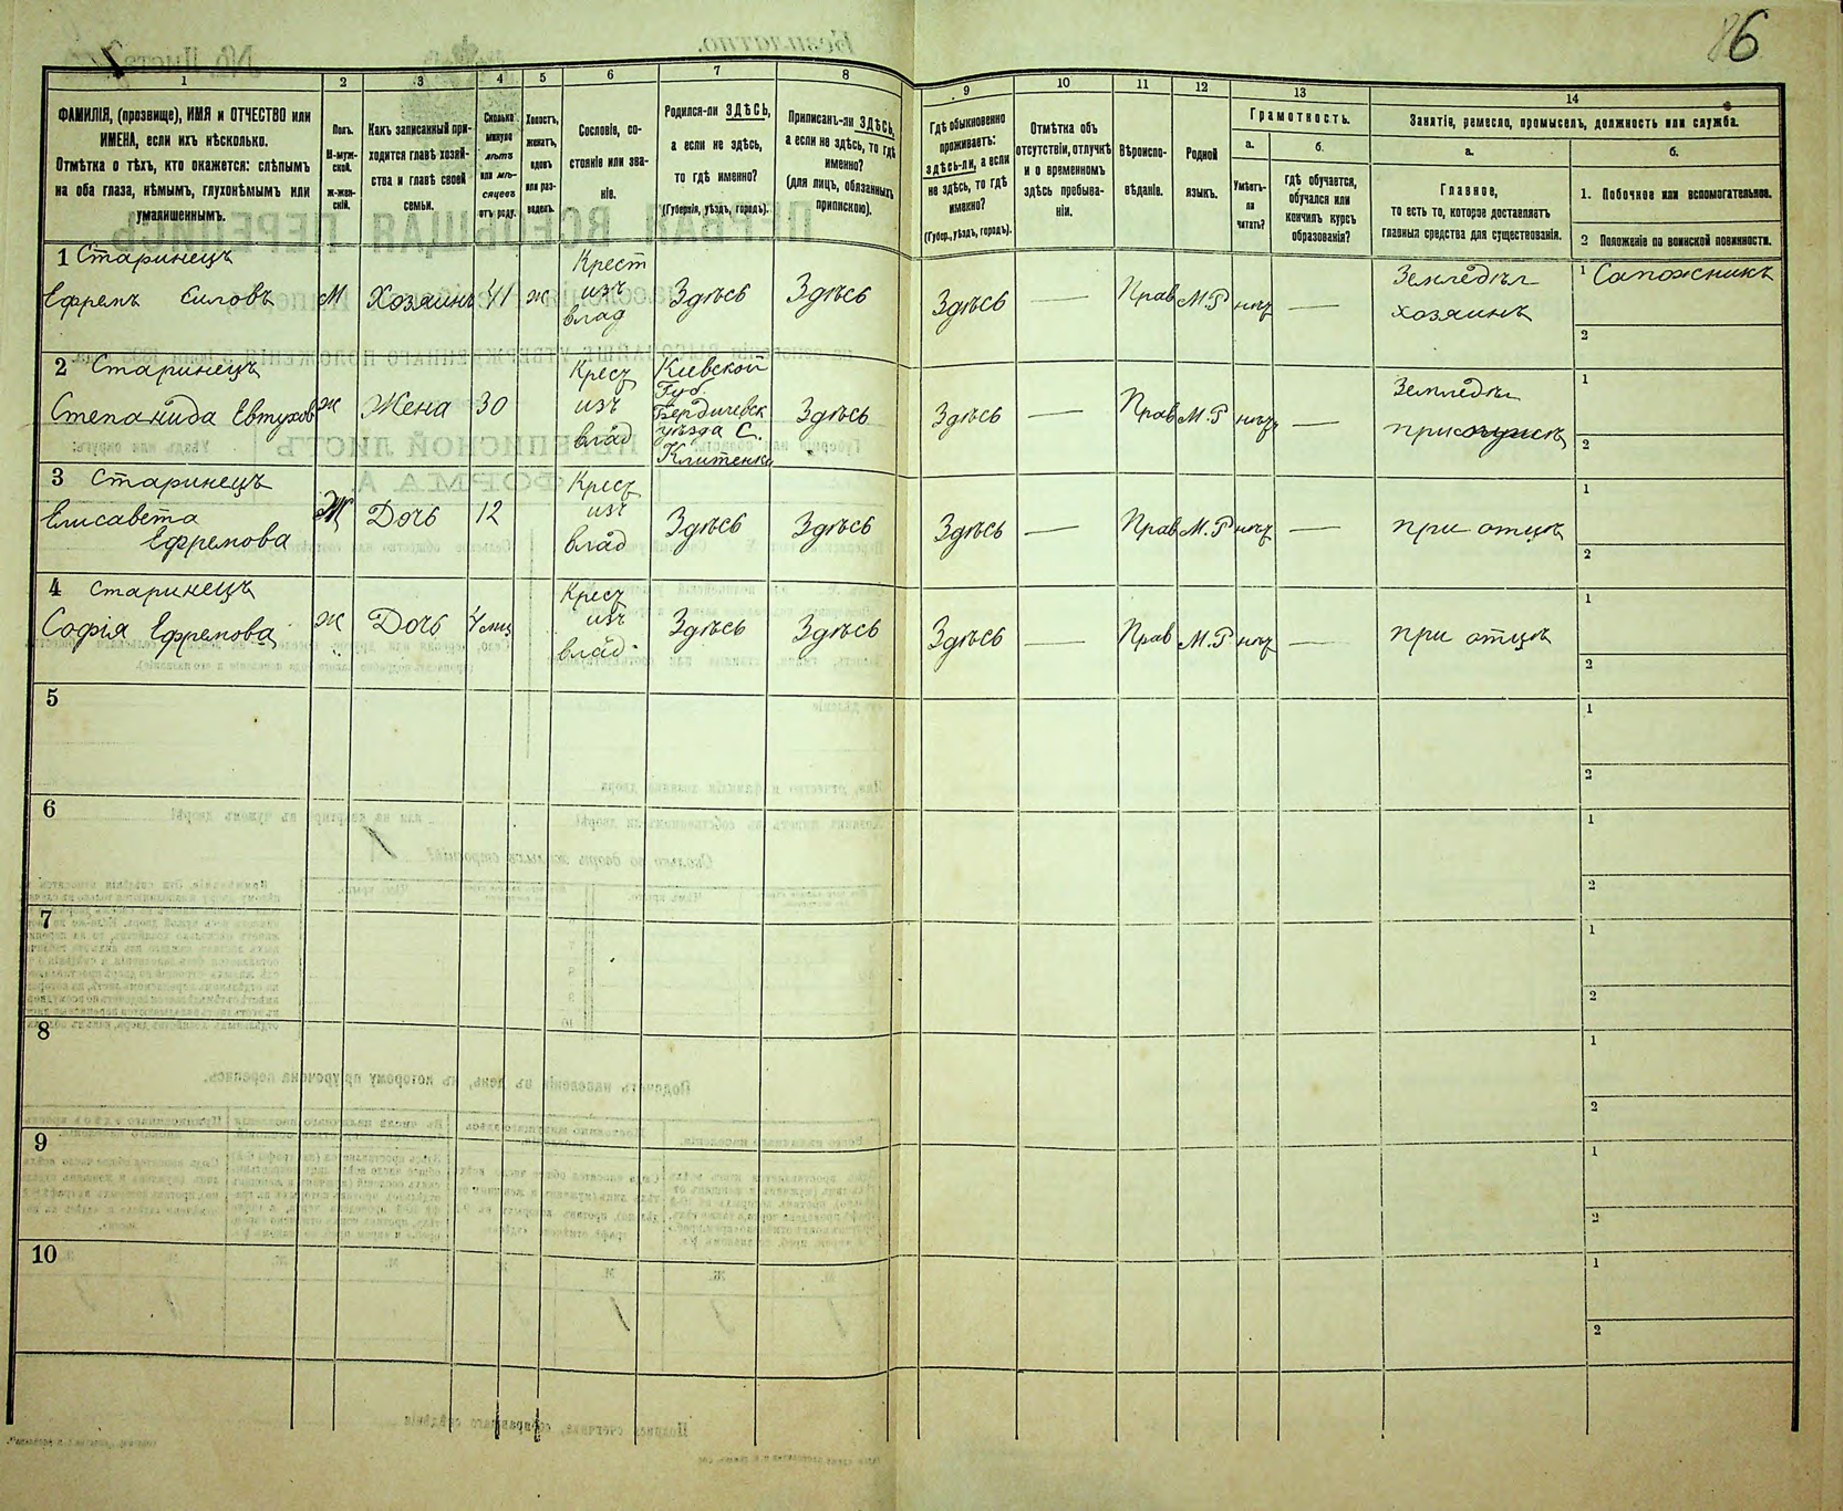 86
1
2
3
4
5
6
7
8
9
10
11
12
13
14
ФАМИЛІЯ, (прозвище), ИМЯ и ОТЧЕСТВО или
ИМЕНА, если ихъ нѣсколько.
Отмѣтка о тѣхъ, кто окажется: слѣпымъ
на оба глаза, нѣмымъ, глухонѣмымъ или
умалишеннымъ.
Полъ.
М-муж-
ской.
Ж-жен-
скій.
Какъ записанный при-
ходится главѣ хозяй-
ства и главѣ своей
семьи.
Сколько
минуло
лѣтъ
или мѣ-
сяцевъ
отъ роду.
Холостъ,
женатъ,
вдовъ
или раз-
веденъ.
Сословіе, со-
стояніе или зва-
ніе.
Родился-ли ЗДѢСЬ,
а если не здѣсь,
то гдѣ именно?
(Губернія, уѣздъ, городъ).
Приписанъ-ли ЗДѢСЬ,
а если не здѣсь, то гдѣ
именно?
(для лицъ, обязанныхъ
припискою).
Гдѣ обыкновенно
проживаетъ:
здѣсь-ли, а если
не здѣсь, то гдѣ
именно?
(Губер., уѣздъ, городъ).
Отмѣтка объ
отсутствіи, отлучкѣ
и о временномъ
здѣсь пребыва-
ніи.
Вѣроиспо-
вѣданіе.
Родной
языкъ.
Грамотность.
а.
Умѣетъ-
ли
читать?
б.
гдѣ обучается,
обучался или
кончилъ курсъ
образованія?
Занятіе, ремесло, промыселъ, должность или служба.
а.
Главное,
то есть то, которое доставляетъ
главныя средства для существованія.
б.
1. Побочное или вспомогательное.
2 Положеніе по воинской повинности.
1 Старинецъ
Ефремъ Силовъ
М
Хозяинъ
41
ж
Крест
изъ
влад
Здѣсь
Здѣсь
Здѣсь
—
Прав
М.Р
нѣтъ
—
Земледѣл
хозяинъ
1 Сапожникъ
2
2 Старинецъ
Степанида Евтухов
ж
Жена
30
Крест
изъ
влад
Кіевской
Губ.
Бердичевск
уѣзда С.
Клитенки
Здѣсь
Здѣсь
—
Прав
М.Р
нѣтъ
—
Земледѣл
1
2
3 Старинецъ
Елисавета
Ефремова
Ж
Дочь
12
Крест
изъ
влад
Здѣсь
Здѣсь
Здѣсь
—
Прав
М.Р
нѣтъ
—
при отцѣ
1
2
4 Старинецъ
Софія Ефремова
ж
Дочь
4 мѣс
Крест
изъ
влад.
Здѣсь
Здѣсь
Здѣсь
—
Прав
М.Р
нѣтъ
—
при отцѣ
1
2
5
1
2
6
1
2
7
1
2
8
1
2
9
1
2
10
1
2